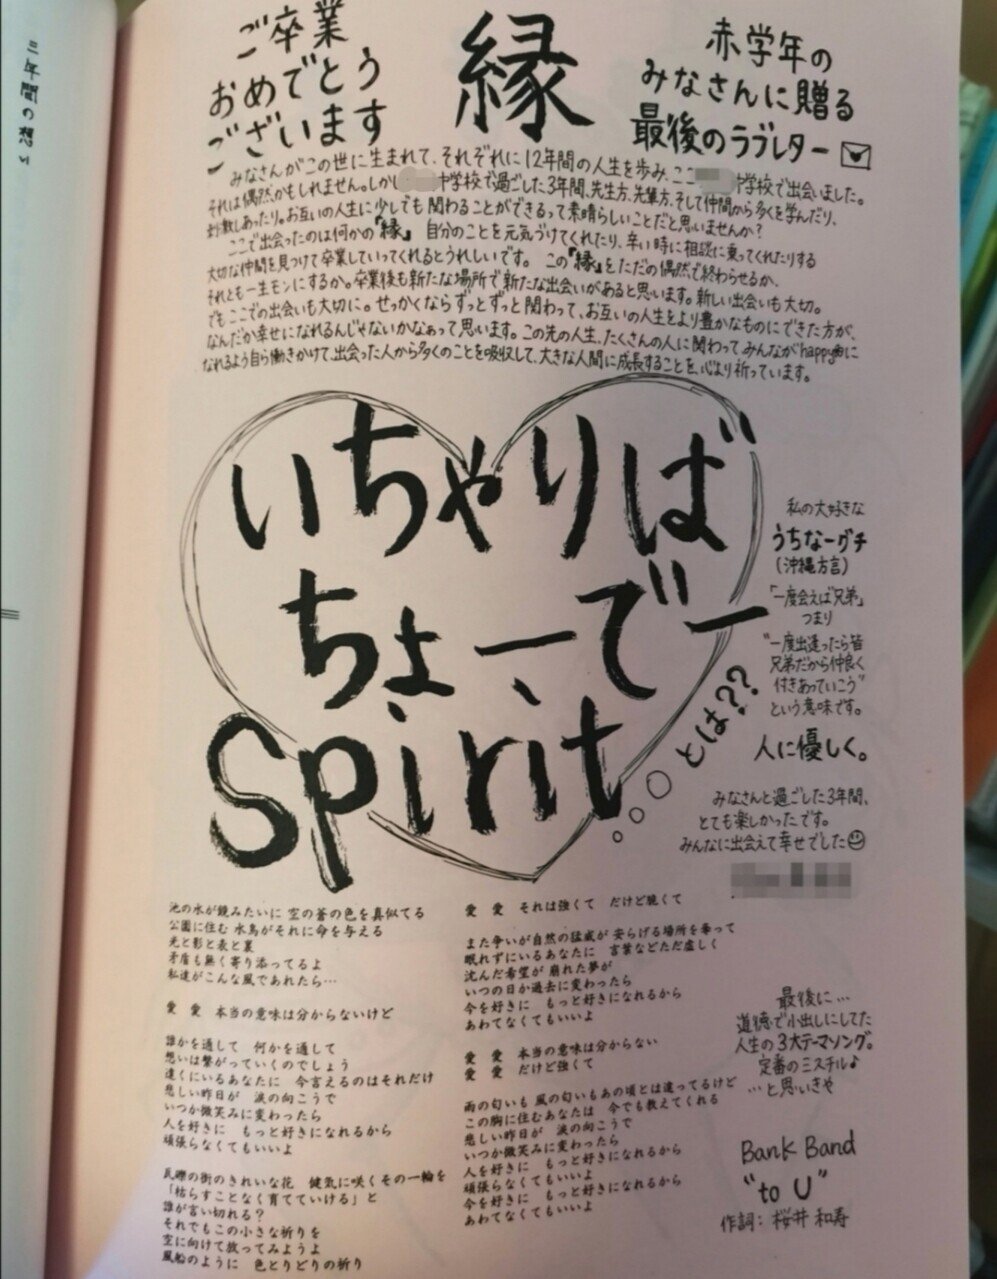 三年間の想い
ご卒業
おめでとう
ございます
縁
赤学年の
みなさんに贈る
最後のラブレター
みなさんがこの世に生まれて、それぞれに12年間の人生を歩み、ここ中学校で出会いました。
それは偶然かもしれません。しかし中学校で過ごした3年間、先生方、先輩方、そして仲間から多くを学んだり、
刺激しあったり。お互いの人生に少しでも関わることができるって素晴らしいことだと思いませんか?
ここで出会ったのは何かの『縁』 自分のことを元気づけてくれたり、辛い時に相談に乗ってくれたりする
大切な仲間を見つけて卒業していってくれるとうれしいです。 この『縁』をただの偶然で終わらせるか、
それとも一生モンにするか。卒業後も新たな場所で新たな出会いがあると思います。新しい出会いも大切。
でもここでの出会いも大切に。せっかくならずっとずっと関わって、お互いの人生をより豊かなものにできた方が、
なんだか幸せになれるんじゃないかなぁって思います。この先の人生、たくさんの人に関わってみんながhappyに
なれるよう自ら働きかけて、出会った人から多くのことを吸収して、大きな人間に成長することを、心より祈っています。
いちゃりば
ちょーでー
Spirit
とは??
私の大好きな
うちなーグチ
(沖縄方言)
「一度会えば兄弟」
つまり
"一度出逢ったら皆
兄弟だから仲良く
付きあっていこう"
という意味です。
人に優しく。
みなさんと過ごした3年間、
とても楽しかったです。
みんなに出会えて幸せでした
池の水が鏡みたいに 空の蒼の色を真似てる
公園に住む 水鳥がそれに命を与える
光と影と表と裏
矛盾も無く寄り添ってるよ
私達がこんな風であれたら…
愛 愛 本当の意味は分からないけど
誰かを通して 何かを通して
想いは繋がっていくのでしょう
遠くにいるあなたに 今言えるのはそれだけ
悲しい昨日が 涙の向こうで
いつか微笑みに変わったら
人を好きに もっと好きになれるから
頑張らなくてもいいよ
瓦礫の街のきれいな花 健気に咲くその一輪を
「枯らすことなく育てていける」と
誰が言い切れる?
それでもこの小さな祈りを
空に向けて放ってみようよ
風船のように 色とりどりの祈り
愛 愛 それは強くて だけど脆くて
また争いが自然の猛威が 安らげる場所を奪って
眠れずにいるあなたに 言葉などただ虚しく
沈んだ希望が 崩れた夢が
いつの日か過去に変わったら
今を好きに もっと好きになれるから
あわてなくてもいいよ
愛 愛 本当の意味は分からない
愛 愛 だけど強くて
雨の匂いも 風の匂いもあの頃とは違ってるけど
この胸に住むあなたは 今でも教えてくれる
悲しい昨日が 涙の向こうで
いつか微笑みに変わったら
人を好きに もっと好きになれるから
頑張らなくてもいいよ
今を好きに もっと好きになれるから
あわてなくてもいいよ
最後に…
道徳で小出しにしてた
人生の3大テーマソング。
定番のミスチル♪
…と思いきや
Bank Band
"to U"
作詞:桜井和寿